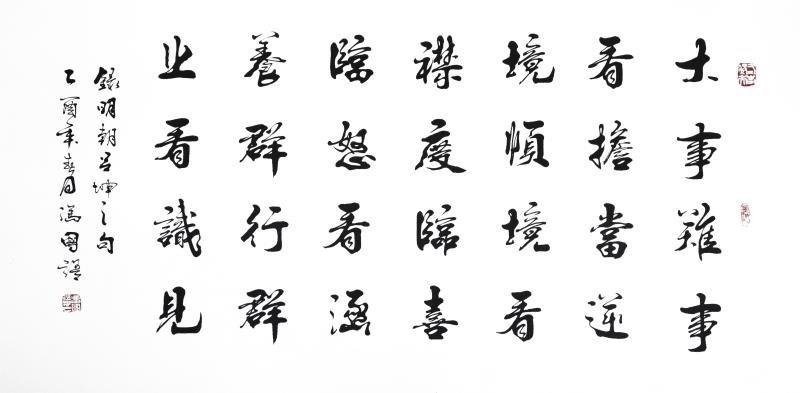 大事難事
看擔當逆
境順境看
襟度臨喜
臨怒看涵
養群行群
止看識見
錄明朝呂坤之句
乙酉年春月馮國